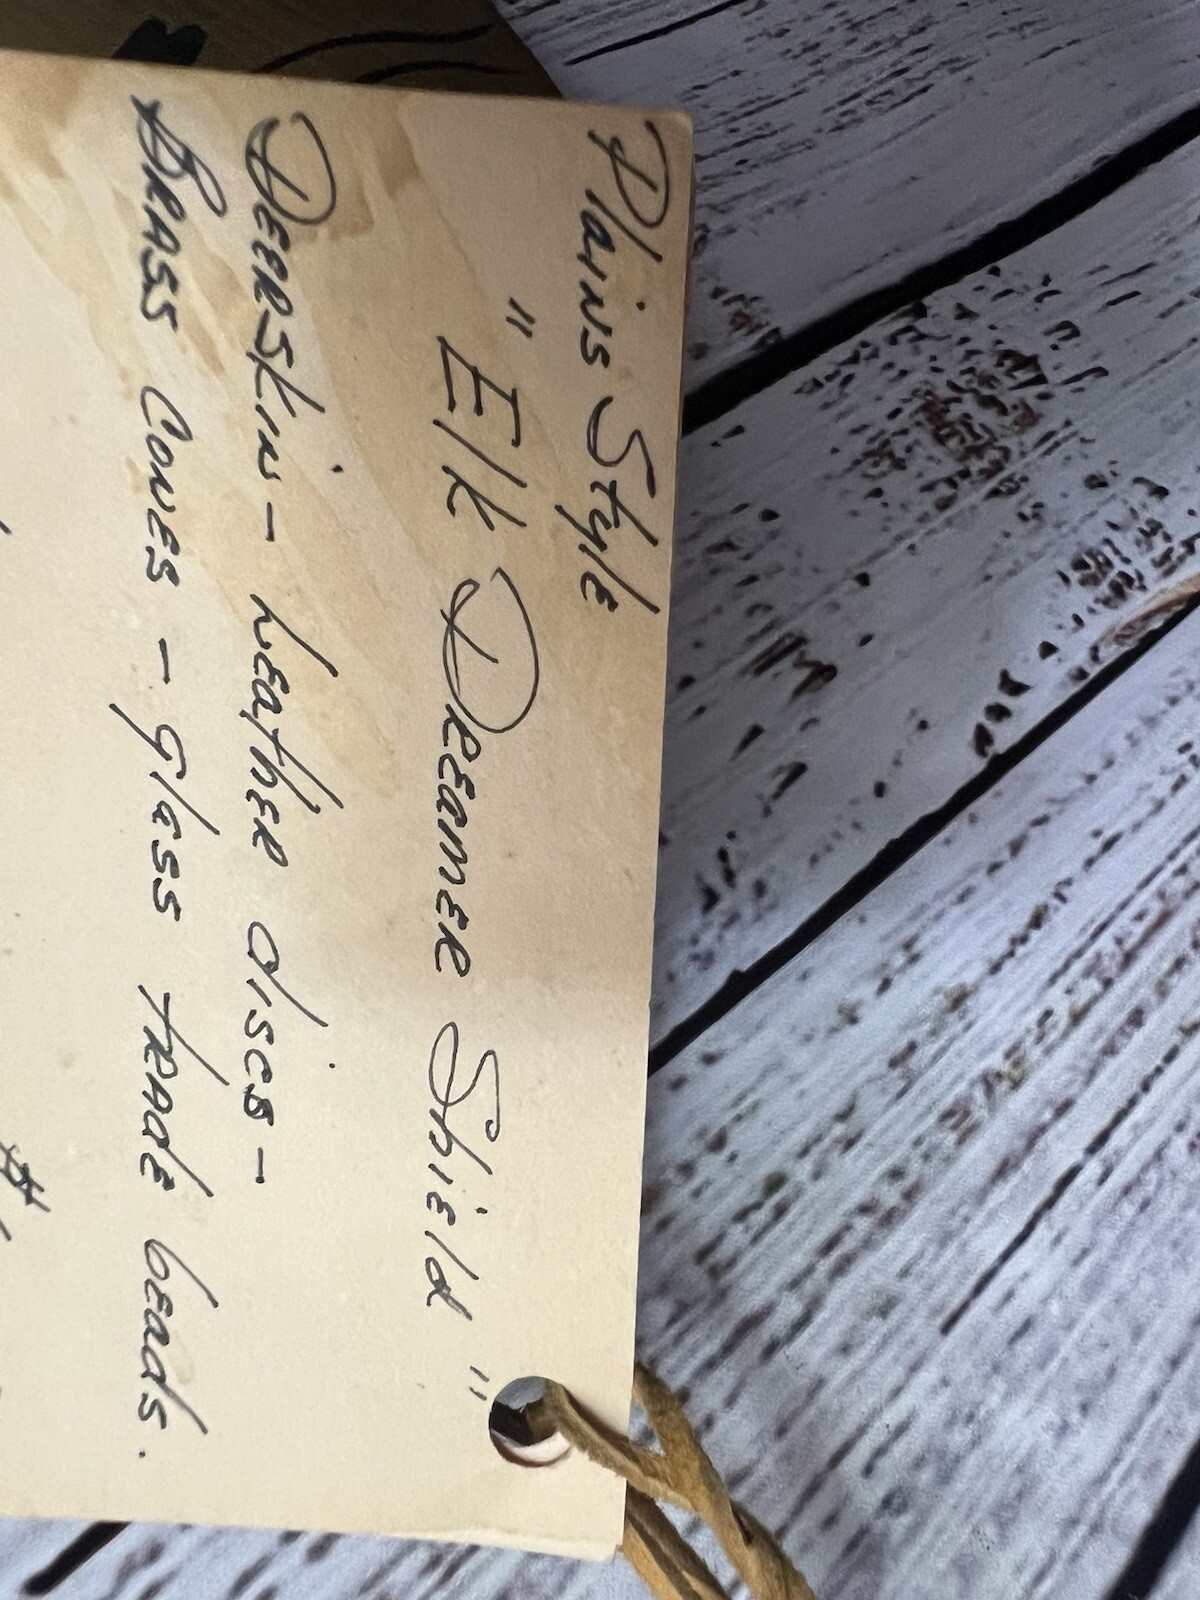 Plains Style
"Elk Dreamer Shield"
Deerskin - Leather discs -
Brass Cones - glass trade beads.
$